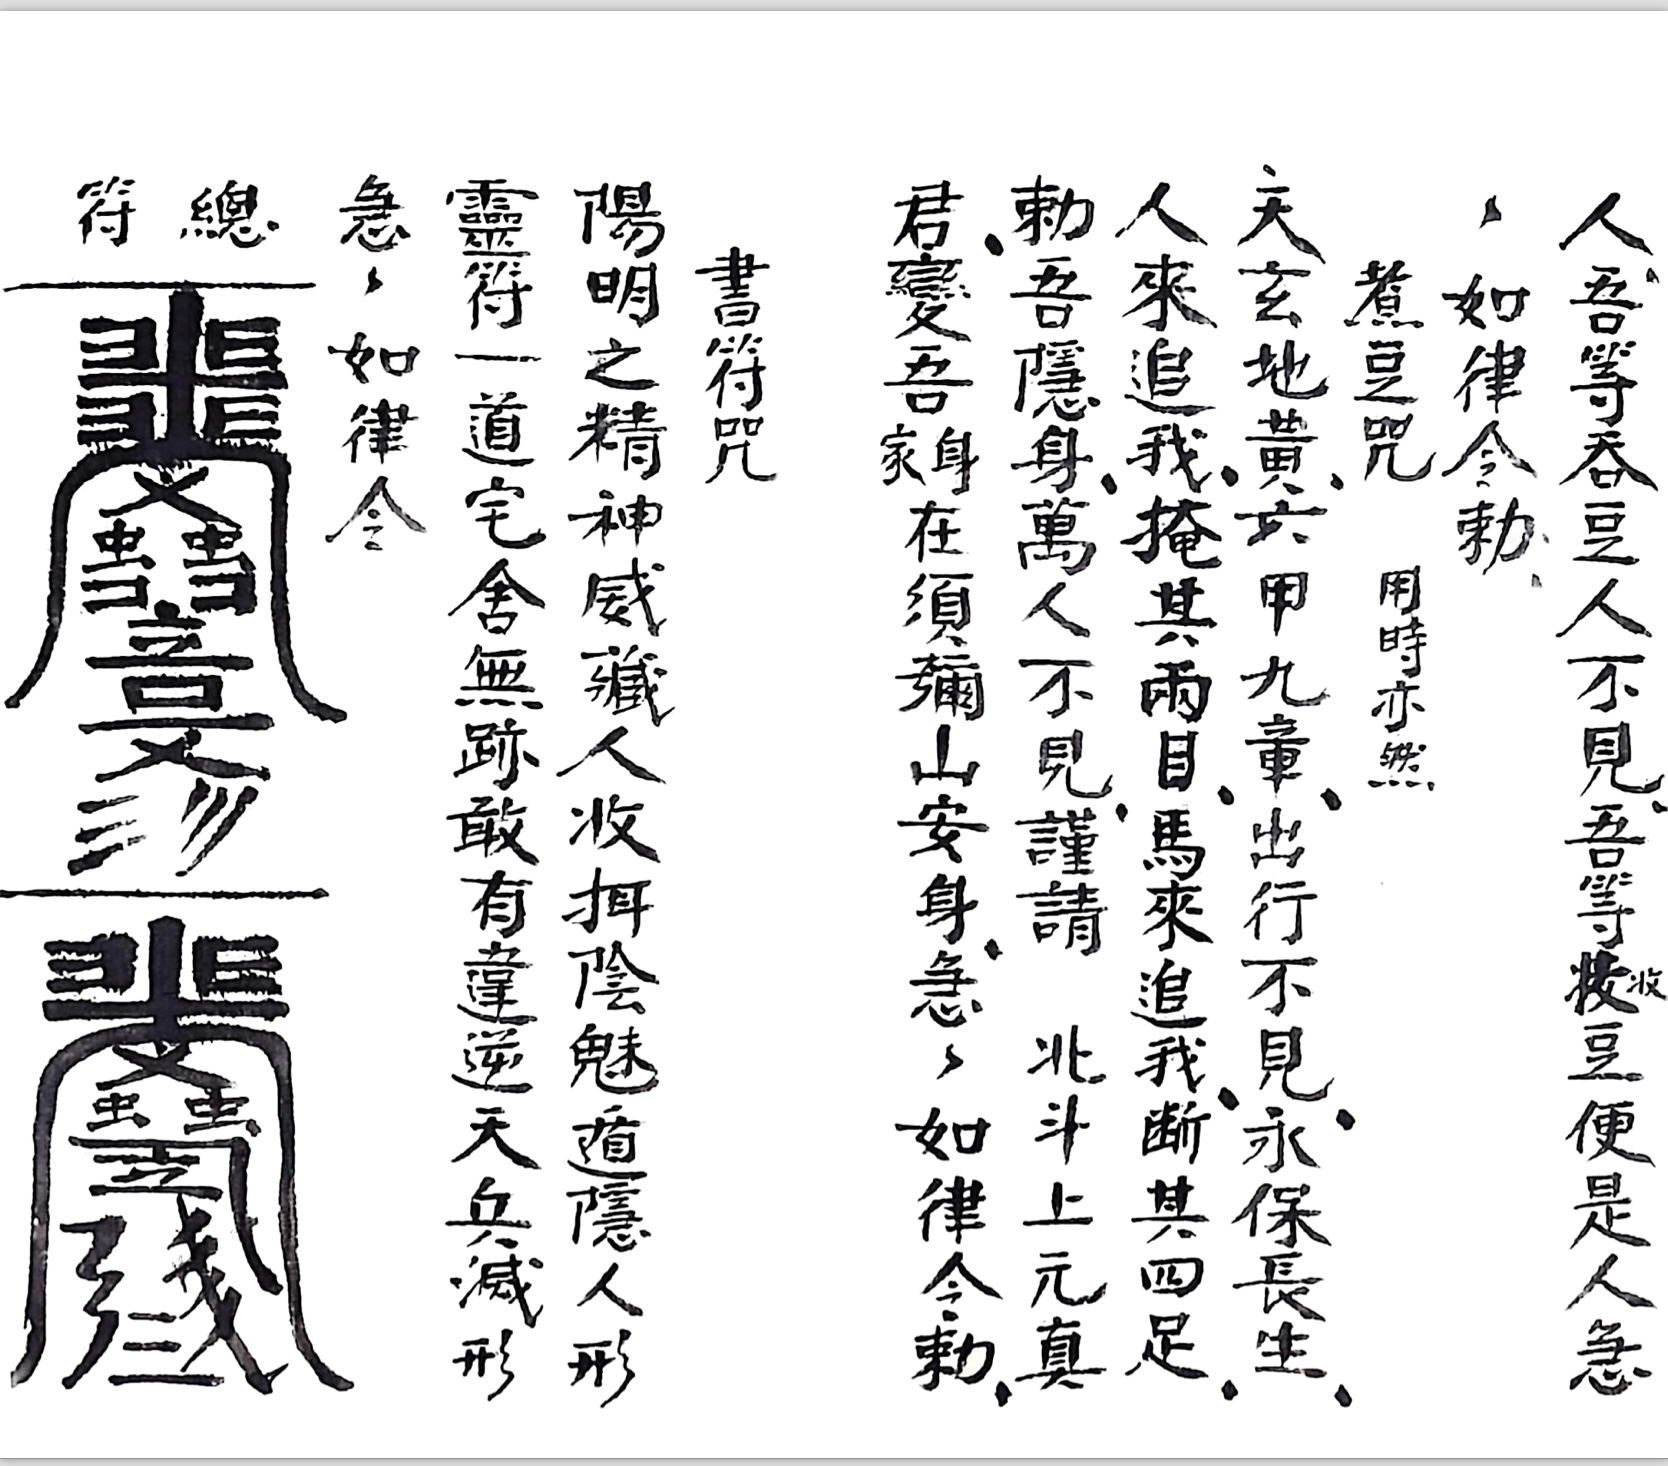 人吾等吞豆人不見吾等收豆便是人急
〻如律令勅
煮豆咒 用時亦然
天玄地黃六甲九章出行不見永保長生
人來追我掩其兩目馬來追我断其四足
勅吾隱身萬人不見謹請 北斗上元真
君變吾身家在須彌山安身急〻如律令勅
書符咒
陽明之精神威藏人收拜陰魅遁隱人形
靈符一道宅舍無跡敢有違逆天兵滅形
急〻如律令
總符